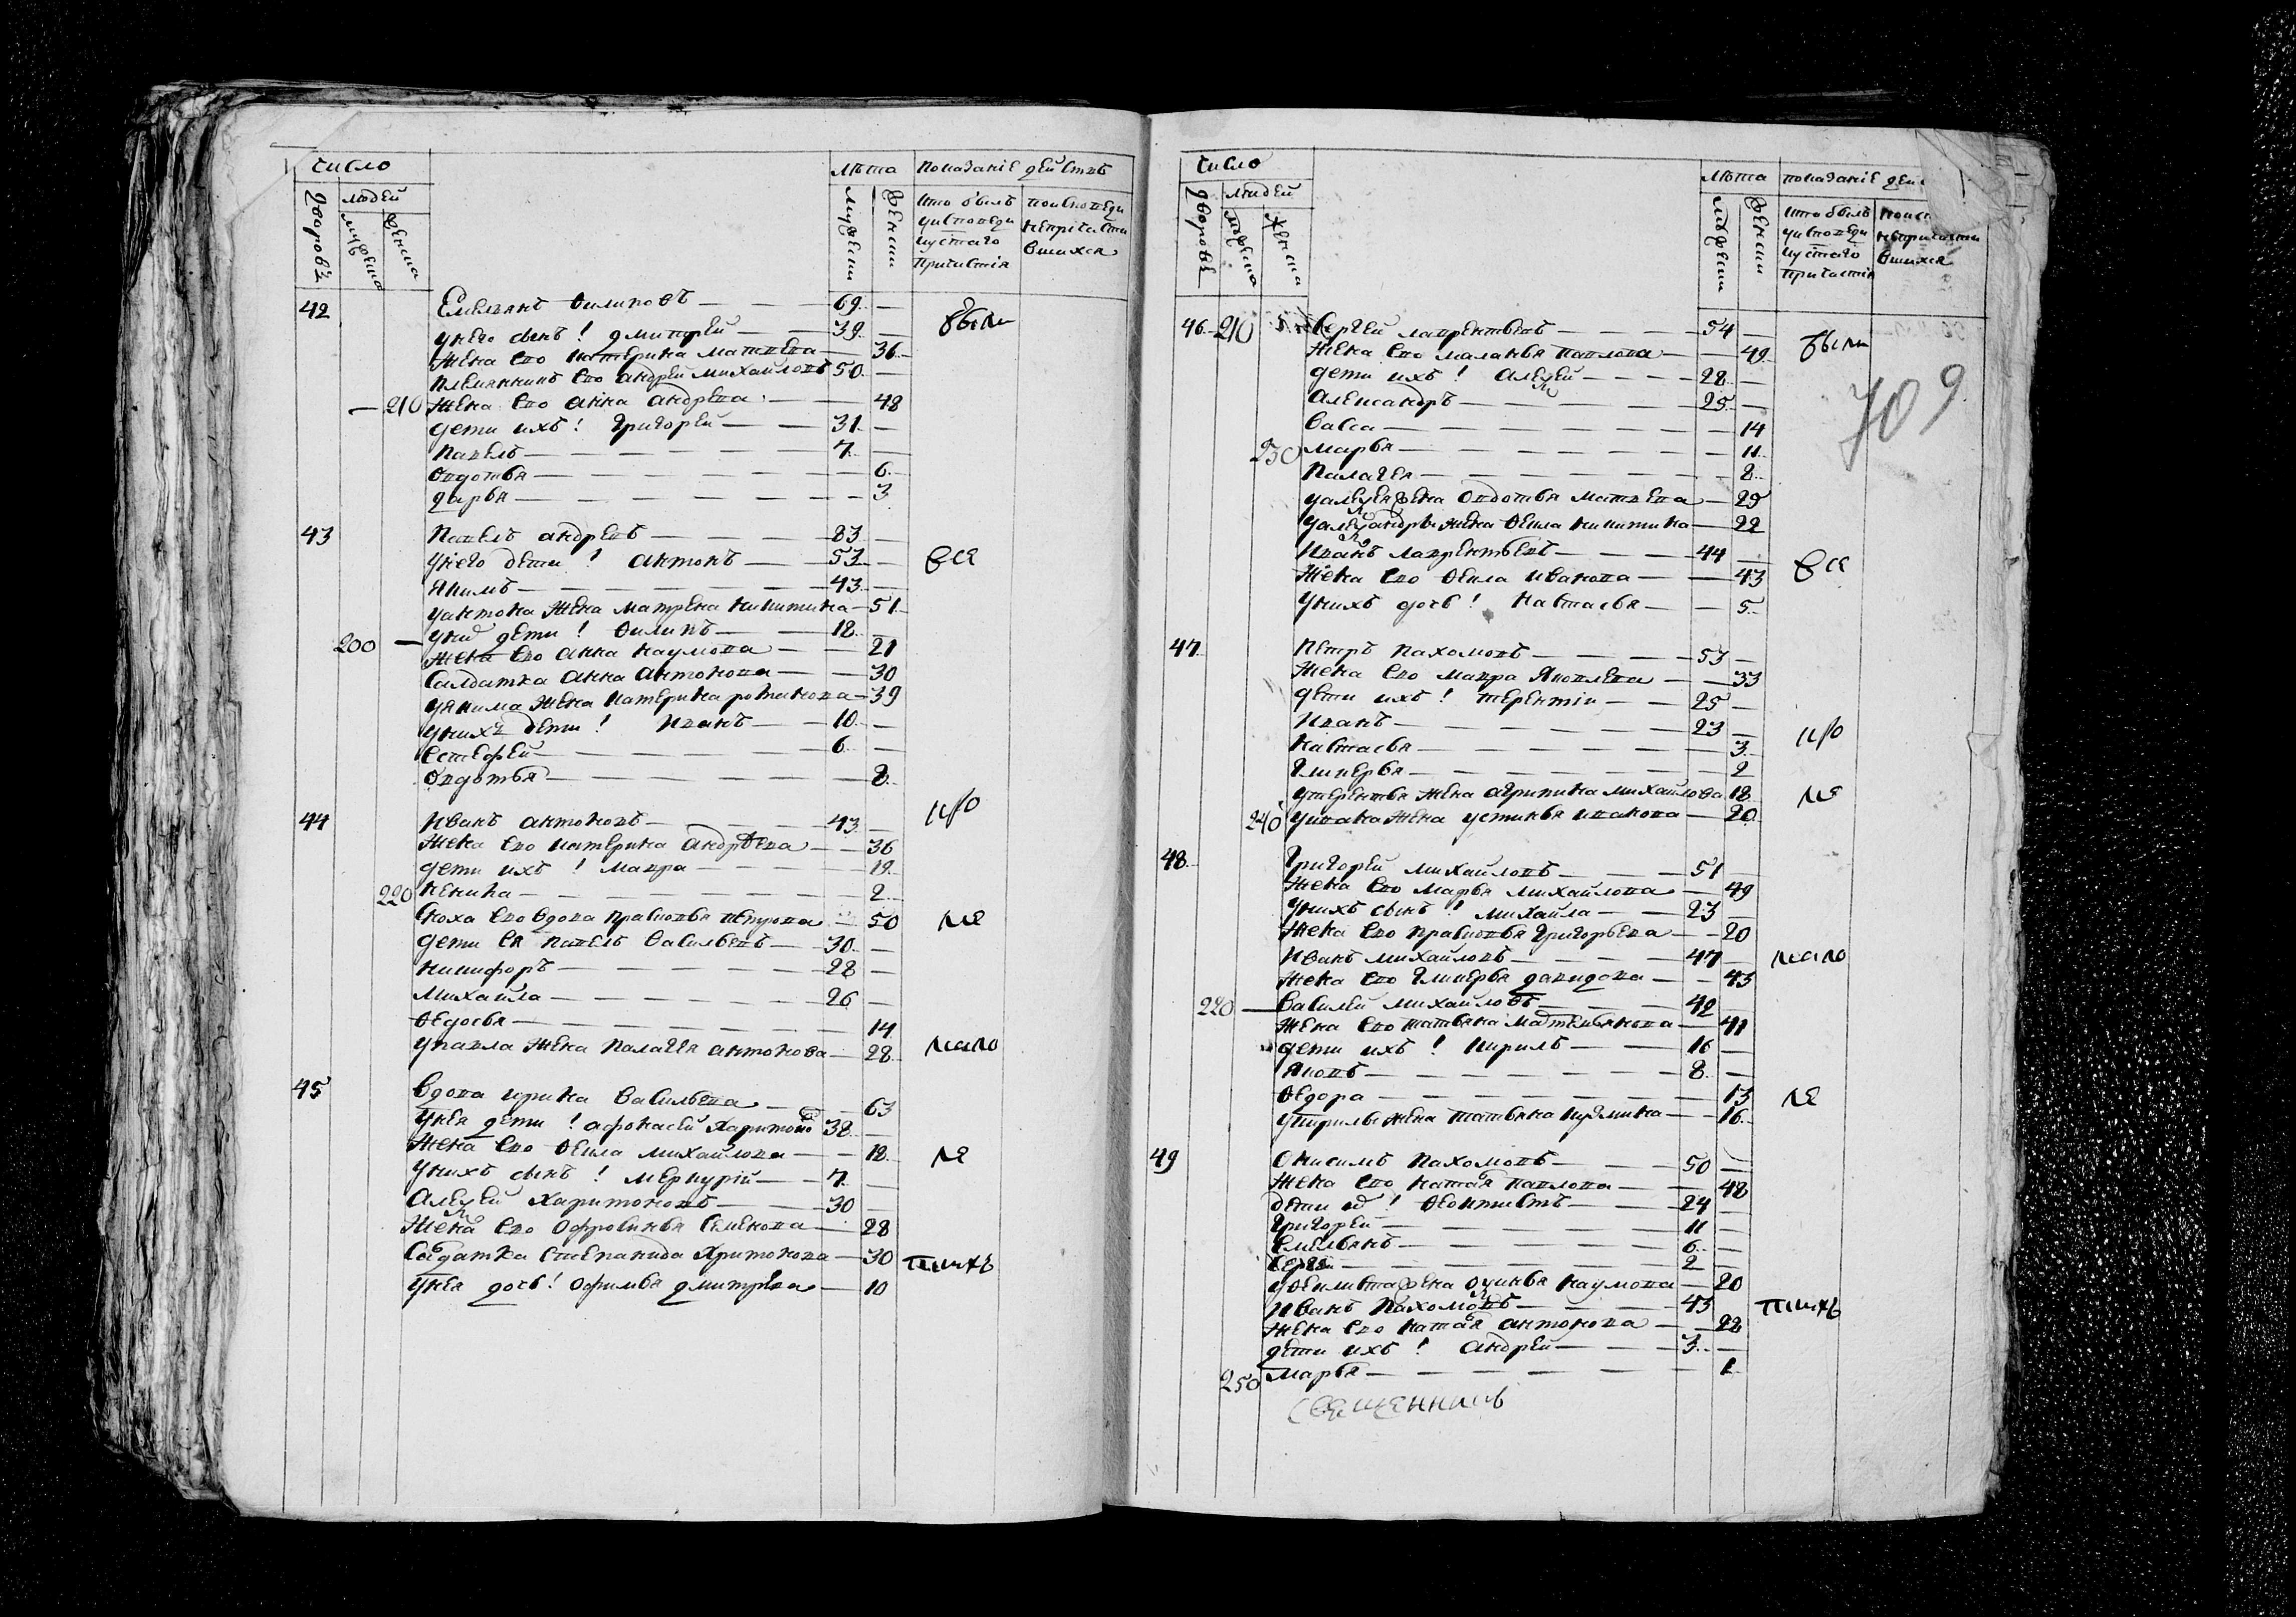 число
лѣта показанїе действъ
людей
дворовъ
мужеска
женска
мужеска
женски
кто былъ
уисповеди
исѣтаго
причастїя
поисповеди
непричасти
вшихся
42 Емельянъ Филиповъ 69
были
унего сынъ! дмитрей 39
Жена Ево катерина матвева 36
племянникъ Ево андрей михайловъ 50
210 Жена Ево анна андрева 48
дети ихъ! Григорей 31
павелъ 7
Овдотья 6
дарья 3
43 павелъ андревъ 83
унего дети! антонъ 53
все
якимъ 43
уантона Жена матрена никитина 51
200 уних дети! Филипъ 18
Жена Ево анна наумова 21
Салдатка анна антонова 30
уякима Жена катерина родионова 39
унихъ дети! Иванъ 10
Естефей 6
Овдотья 8
ис
44 Иванъ антоновъ 43
Жена Ево катерина андрѣева 36
дети ихъ! мавра 12
220 ненила 2
Сноха Ево вдова прасковья петрова 50
пе
дети Ея павелъ васильевъ 30
никифоръ 28
михайла 26
Федосья 14
упавла Жена палагея антонова 28
мало
45 вдова ирина васильева 63
унея дети! афонасей харитоно 38
Жена Ево Фекла михайлова 18
ле
унихъ сынъ! меркурїй 7
алексей харитоновъ 30
Жена Ево Офросинья Семенова 28
Салдатка степанида харитонова 30
тнихъ
унея дочь! Офимья дмитрева 10
число
лѣта показанїе дей
людей
дворовъ
мужеска
женска
мужеска
женски
кто былъ
уисповеди
исѣтаго
причастїя
непричасти
вшихся
46 210 Сергей лаврентьевъ 54
были
Жена Ево маланья павлова 49
709
дети ихъ! алексей 28
александръ 25
васса 14
230 марья 11
палагея 8
уалексея жена Овдотья матвева 25
уалександры жена Фекла никитина 22
Иванъ лаврентьевъ 44
все
Жена Ево Фекла иванова 43
унихъ дочь! настасья 5
47 петръ пахомовъ 53
Жена Ево мавра яковлева 33
дети ихъ! терентїи 25
Иванъ 23
настасья 3
Гликерья 2
утерентья Жена агрипина михайлова 18
240 уивана Жена устинья иванова 20
48 Григорей михайловъ 51
Жена Ево марья михайлова 49
унихъ сынъ! михайла 23
Жена Ево прасковья григорьева 20
Иванъ михайловъ 47
мало
Жена Ево Гликерья давидова 45
220 василей михайловъ 42
Жена Ево татьяна Матемьянова 41
дети ихъ! кирилъ 16
яковъ 8
Федора 13
ле
укирилы Жена татьяна кузмина 16
49 Онисимъ пахомовъ 50
Жена Ево наталья павлова 48
дети их! Феоктистъ 24
Григорей 11
Емельянъ 6
Сергей 2
уФеклиста жена аксинья наумова 20
Иванъ пахомовъ 43
тнихъ
Жена Ево наталья антонова 22
дети ихъ! андрей 3
250 марья 1
священникъ